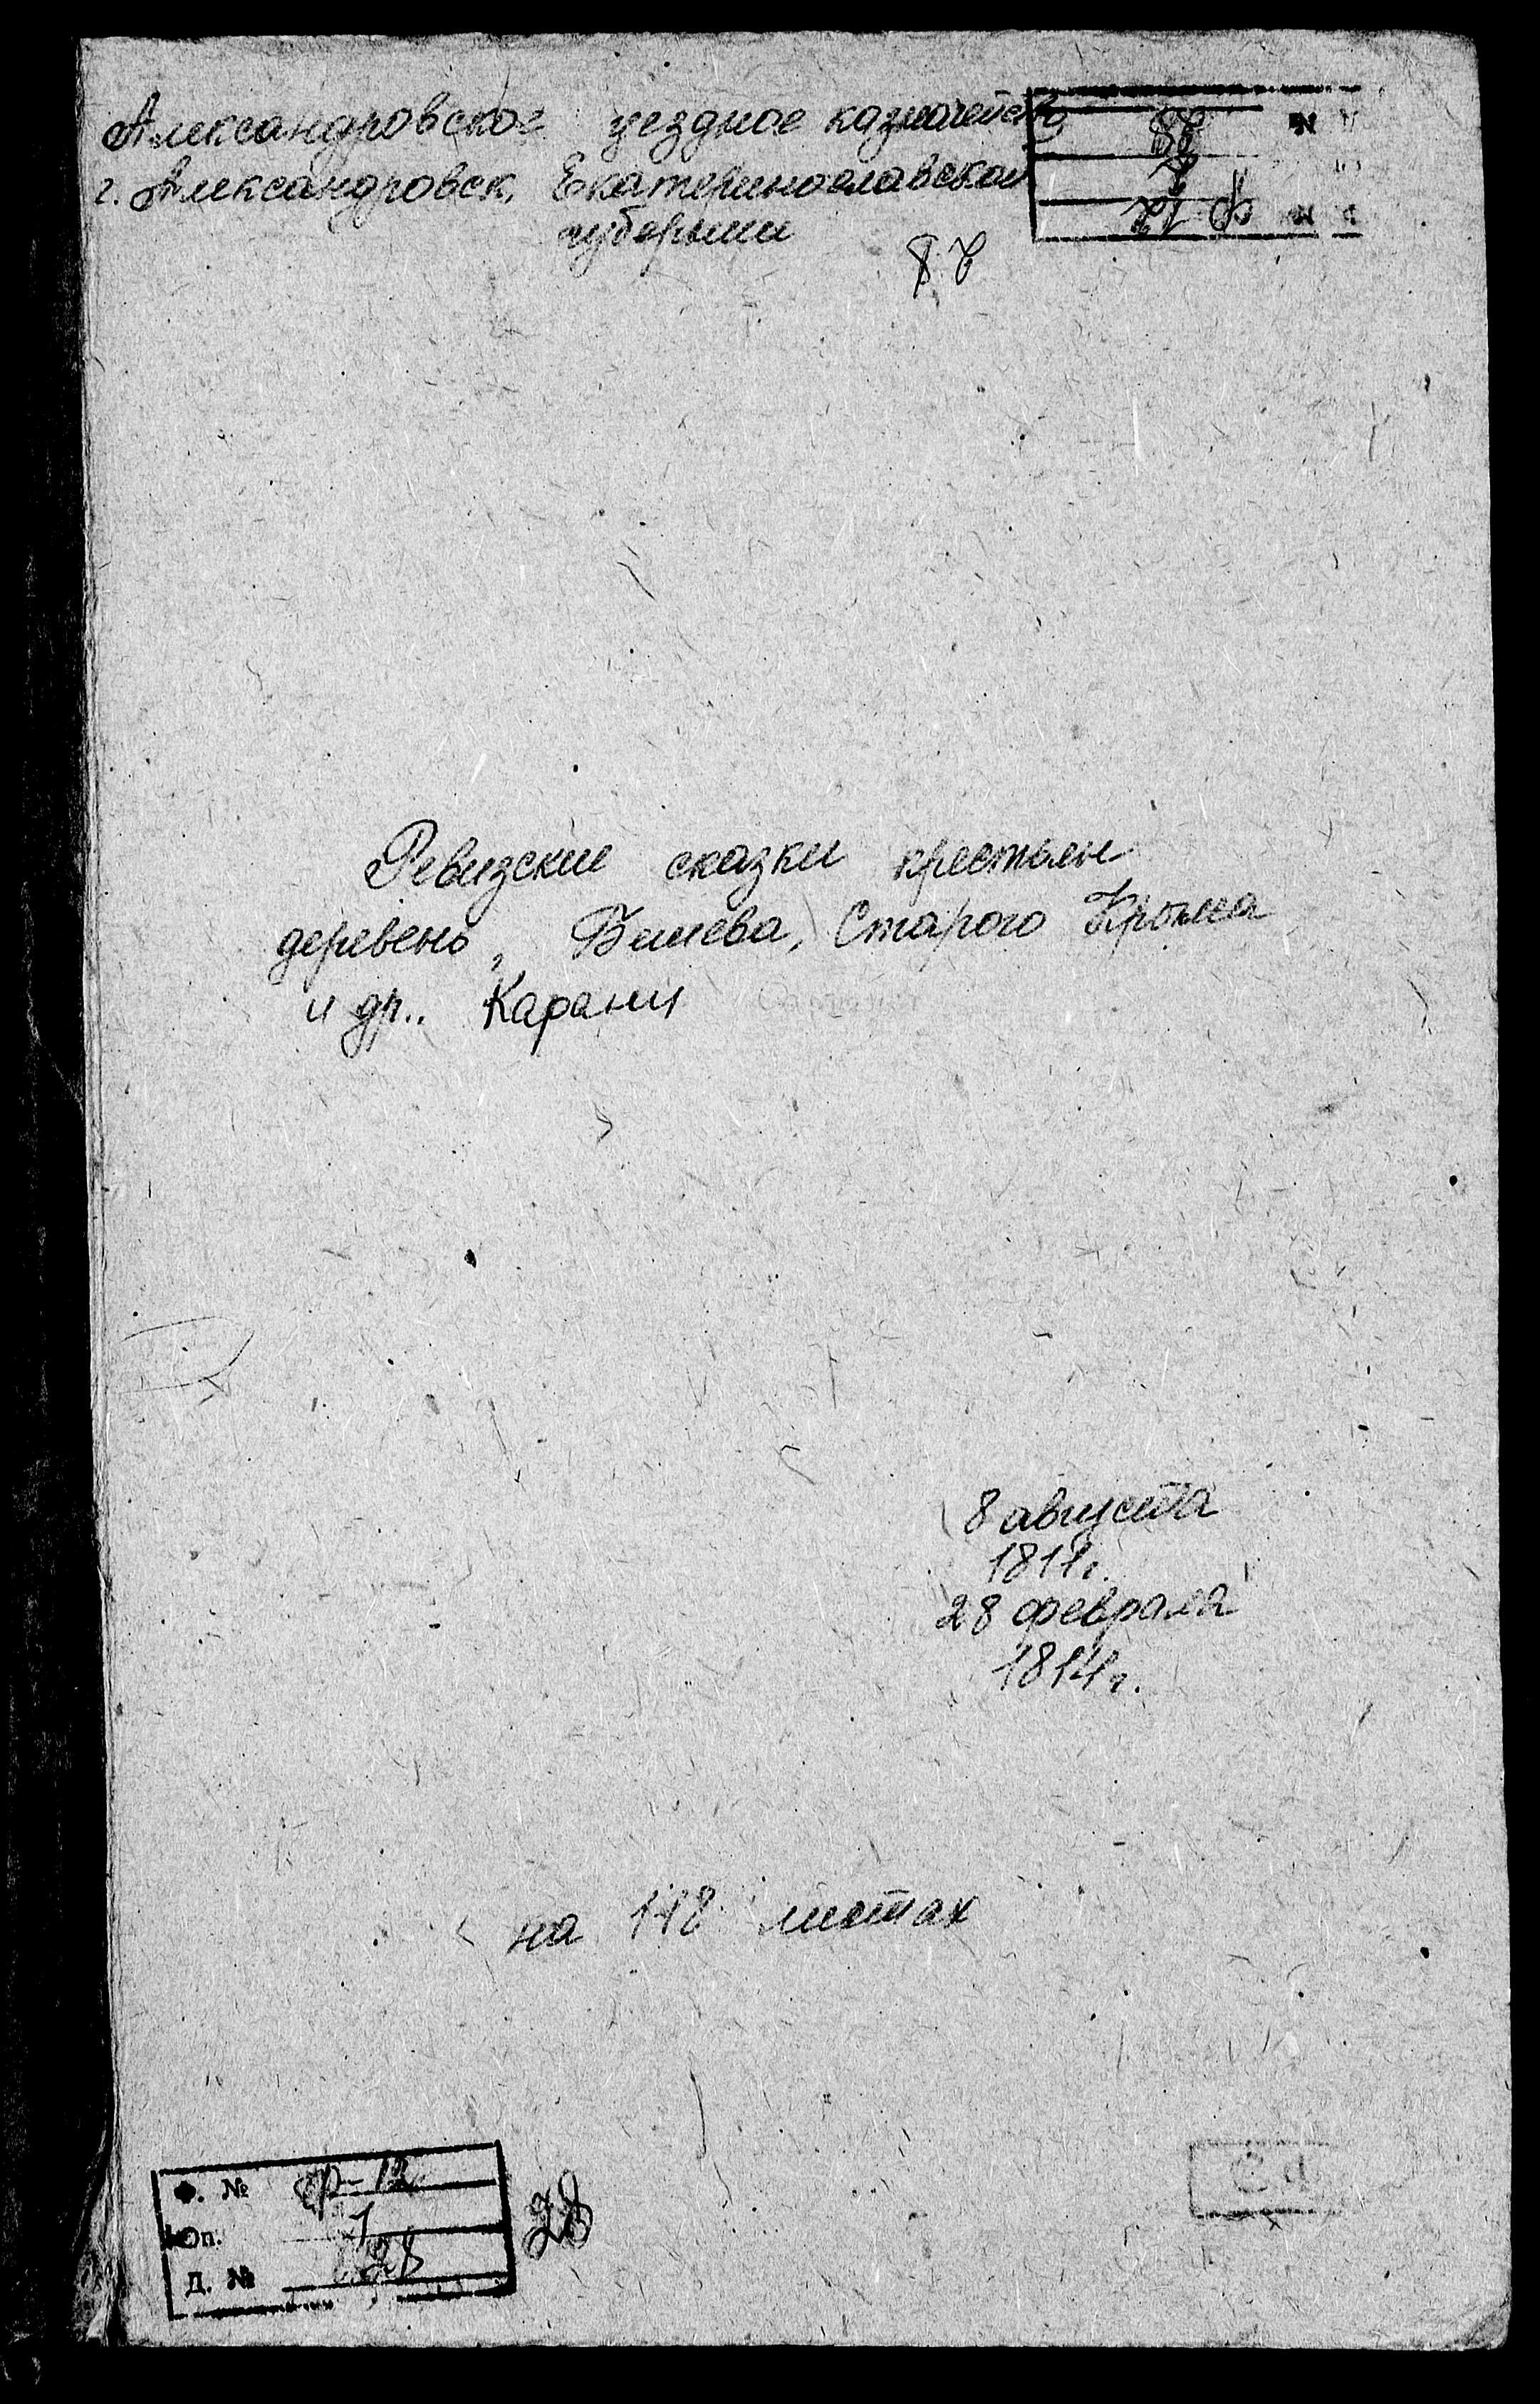 Александровское уездное казначейство
г. Александровск, Екатеринославской
губернии
ф 12
1
28
28
Ревизские сказки крестьян
деревень, Бешева, Старого Крыма
и др.. Карани
8 августа
1811г.
28 февраля
1814г.
на 148 листах
Ф. № ф-12
Оп. 1
Д. № 28
28